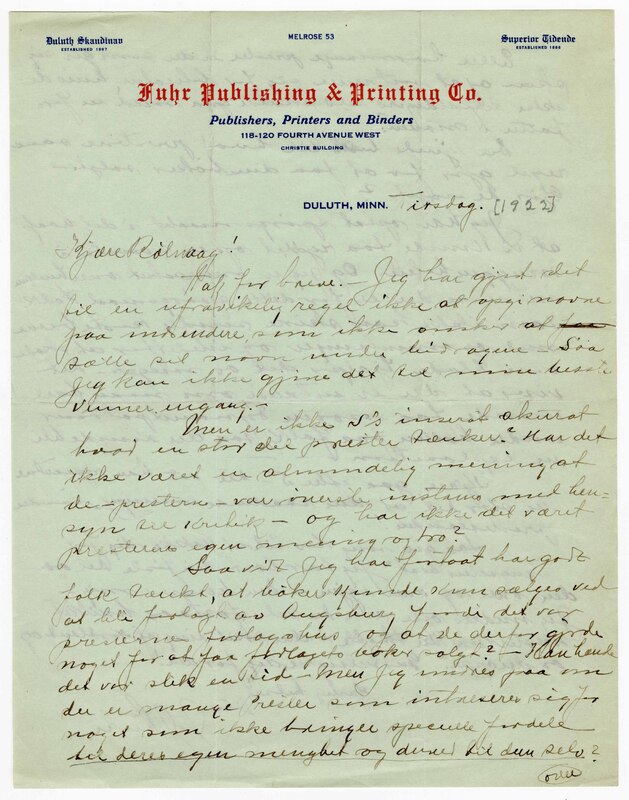 Duluth Skandinav
ESTABLISHED 1887
MELROSE 53
Superior Tidende
ESTABLISHED 1888
Fuhr Publishing & Printing Co.
Publishers, Printers and Binders
118-120 FOURTH AVENUE WEST
CHRISTIE BUILDING
DULUTH, MINN. Tirsdag. [1922]
Kjære Rølvaag!
Tak for brevet. – Jeg har gjort det
til en ufravikelig regel ikke at opgi navne
paa indsendere, som ikke ønsker at
sætte sit navn under bidragene – Saa
jeg kan ikke gjøre det til mine beste
venner engang. –
Men er ikke S's inserat akurat
hvad en stor del prester tænker? Har det
ikke været en almindelig mening at
de – presterne – var øverste instans med hen-
syn til kritik – og har ikke det været
presternes egen mening og tro?
Saa vidt jeg har forstaat har godt
folk tænkt, at bøker kunde kun sælges ved
at bli forlagt av Augsburg fordi det var
presternes forlagshus og at de derfor gjorde
noget for at faa forlagets bøker solgt? – Kan hende
det var slik en tid – Men jeg undres paa om
der er mange prester som interesserer sig for
noget som ikke bringer specielle fordele
til deres egen menighet og derved til dem selv?